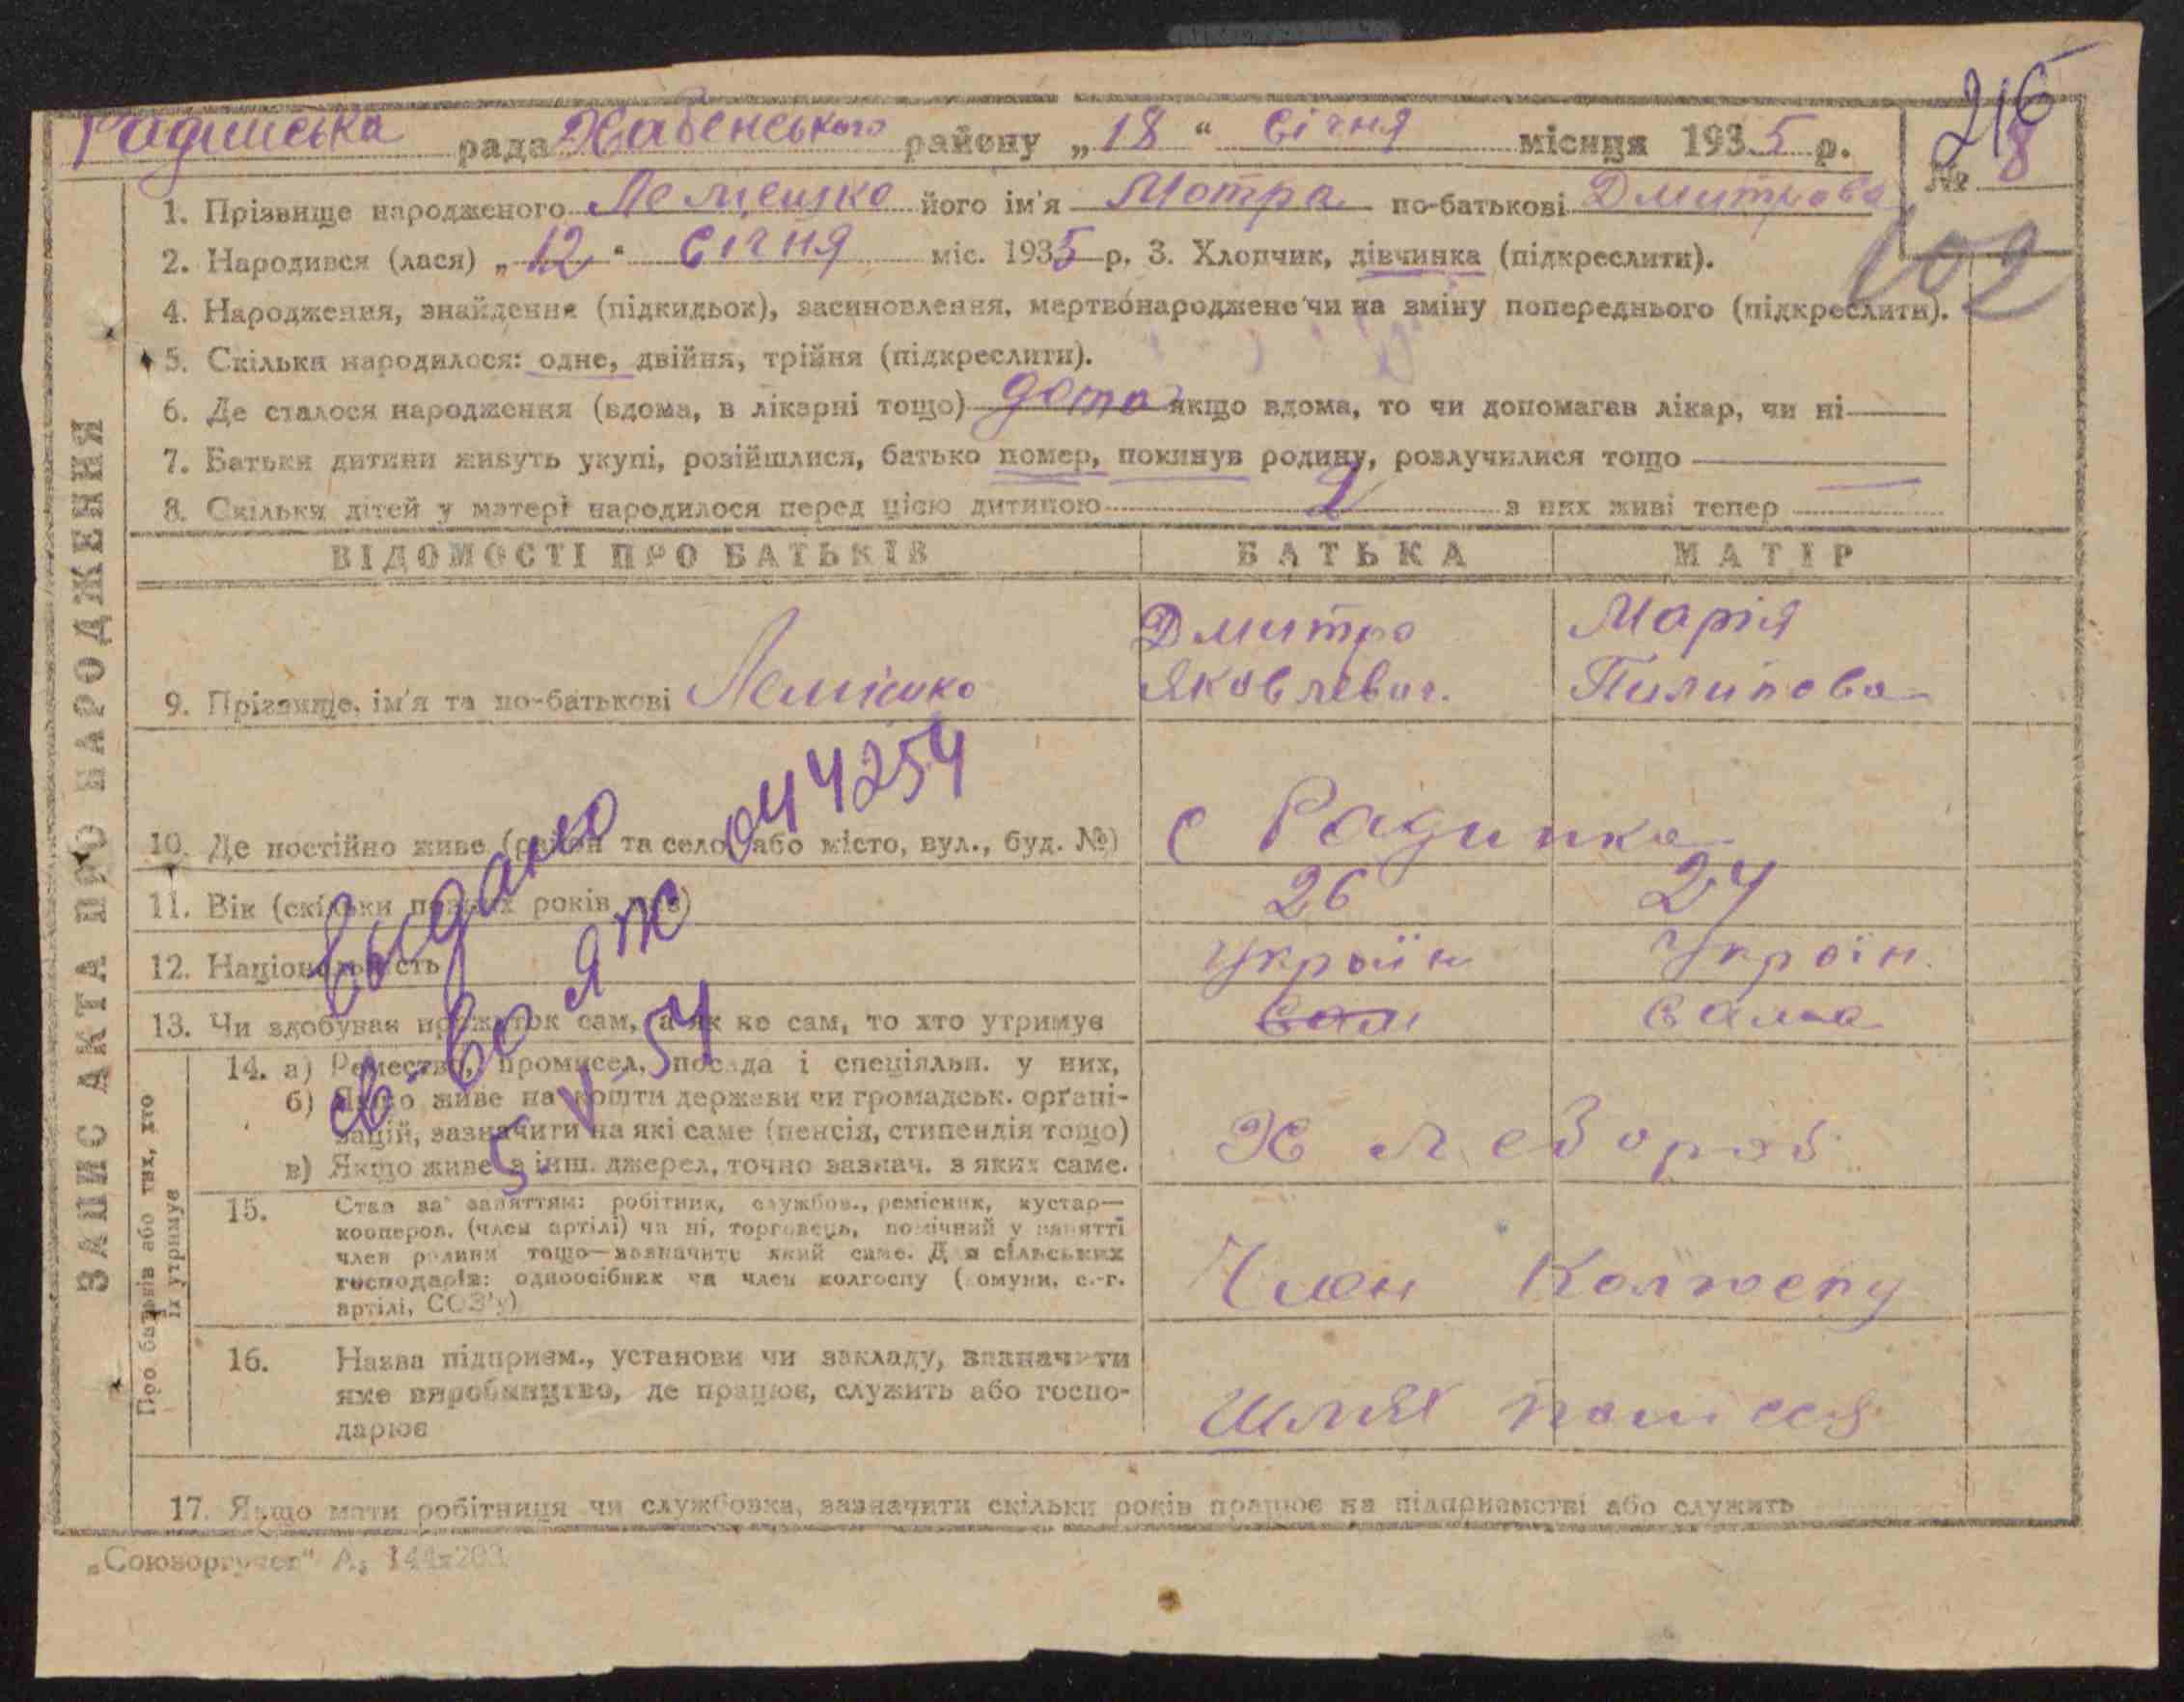 216
Радинська рада Хабенського району „18“ січня місяця 1935 р. № 8
1. Прізвище народженого Лемешко його ім'я Мотра по-батькові Дмитрова
102
2. Народився (лася) „12“ січня міс. 1935 р. 3. Хлопчик, дівчинка (підкреслити).
4. Народження, знайдення (підкидьок), засиновлення, мертвонароджене чи на зміну попереднього (підкреслити).
5. Скільки народилося: одне, двійня, трійня (підкреслити).
6. Де сталося народження (вдома, в лікарні тощо) дома якщо вдома, то чи допомагав лікар, чи ні
7. Батьки дитини живуть укупі, розійшлися, батько помер, покинув родину, розлучилися тощо
8. Скільки дітей у матері народилося перед цією дитиною 2 з них живі тепер —
ЗАПИС АКТА ПРО НАРОДЖЕННЯ
ВІДОМОСТІ ПРО БАТЬКІВ БАТЬКА МАТІР
9. Прізвище, ім'я та по-батькові Лемішко
Дмитро Яковлевич.
Марія Пилипова
10. Де постійно живе (район та село або місто, вул., буд. №) с Радинка
11. Вік (скільки повних років мав) 26 24
12. Національність україн Україн.
13. Чи здобував прожиток сам, а як не сам, то хто утримує сам сама
Про батьків або тих, хто
їх утримує
14. а) Ремество, промисел, посада і спеціяльн. у них,
б) Якщо живе на кошти держави чи громадськ. орґані-
зацій, зазначити на які саме (пенсія, стипендія тощо)
в) Якщо живе з інш. джерел, точно зазнач. з яких саме.
Хлебороб
15. Стан за заняттям: робітник, службов., ремісник, кустар—
коопером. (член артілі) чи ні, торговець, помічний у занятті
член родини тощо—зазначити який саме. Для сільських
господарів: одноосібник чи член колгоспу (комуни, с.-г.
артілі, СОЗ'у)
Член Колгоспу
16. Назва підприєм., установи чи закладу, зазначити
яке виробництво, де працює, служить або госпо-
дарює
Шлях
17. Якщо мати робітниця чи службовка, зазначити скільки років працює на підприємстві або служить
„Союзоргучет“
выдано
св-во ЯЖ 044254
5 V-54